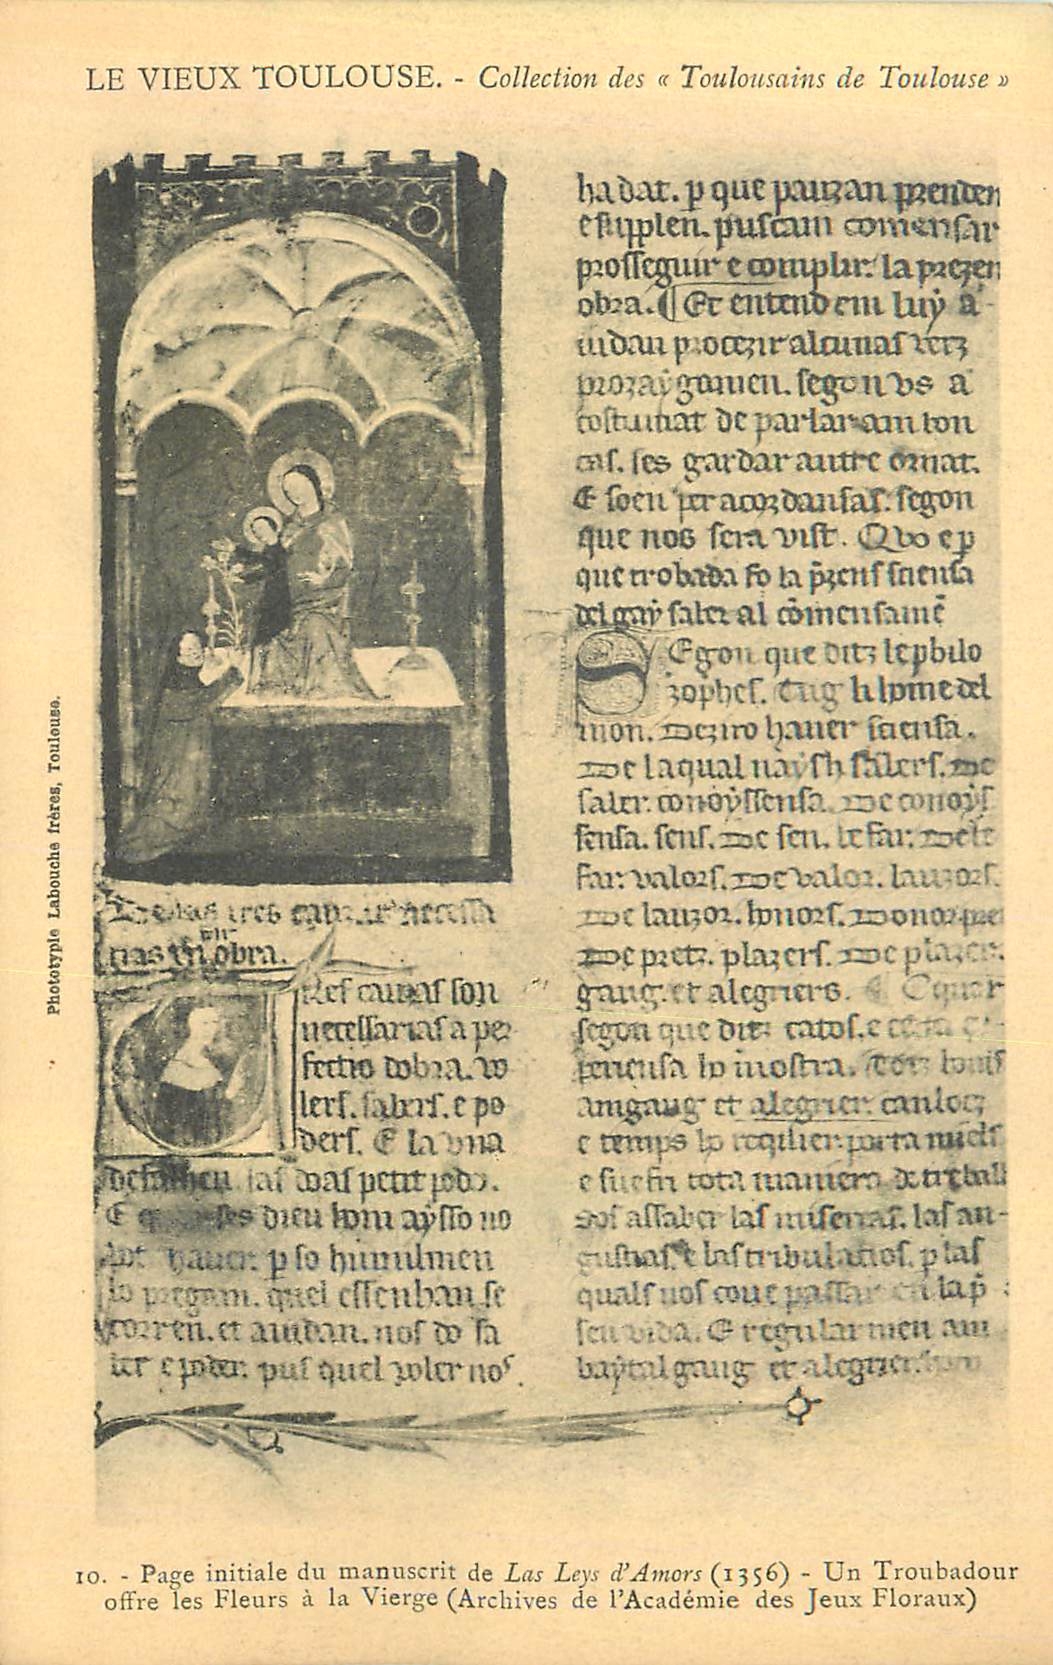 LE VIEUX TOULOUSE. - Collection des « Toulousains de Toulouse »
nas en obra.
Tres causas son
necessarias a per
fectio dobra. vo
lers. sabers. e po
ders. E la una
defalhen. las doas petit podo.
E quar ses dieu hom aysso no
pot haver. p so humilmen
lo pregam. quel essenhan. se
corren. et aiudan. nos do sa
ber e poder. pus quel voler nos
ha dat. p que puscan prenden
e supplen. puscam comensar
prosseguir e complir. la prezen
obra. ¶ Et entendem luy a
iudan procezir alcunas vetz
prozaygamen. segon us a
costumat de parlar. am ton
ses gardar autre ornat.
E soen per acordansas. segon
que nos sera vist. Quo e p
que trobada fo la p̃zens sciensa
del gay saber al cõmensamẽ
Segon que ditz le philo
zophes. Tug li home del
mon. Deziro haver sciensa.
De laqual naysh sabers. De
saber. conoyssensa. De conoys
sensa. sens. De sen. be far. De be
far. valors. De valor. lauzors.
De lauzor. honors. De honor. pre
De pretz. plazers. De plazer.
gaug. et alegriers.
segon que ditz catos. e
periensa ho mostra. Totz homs
am gaug et alegrier. can locz
e temps ho requier. porta miels
e suefri tota maniera de trebalh
Sos assaber las miserias. las an-
gustias. e las tribulatios. p las
quals nos cove passar en la p̃
sen vida. E regularmen am
baytal gaug et alegrier.
Phototypie Labouche frères, Toulouse.
10. - Page initiale du manuscrit de Las Leys d'Amors (1356) - Un Troubadour
offre les Fleurs à la Vierge (Archives de l'Académie des Jeux Floraux)